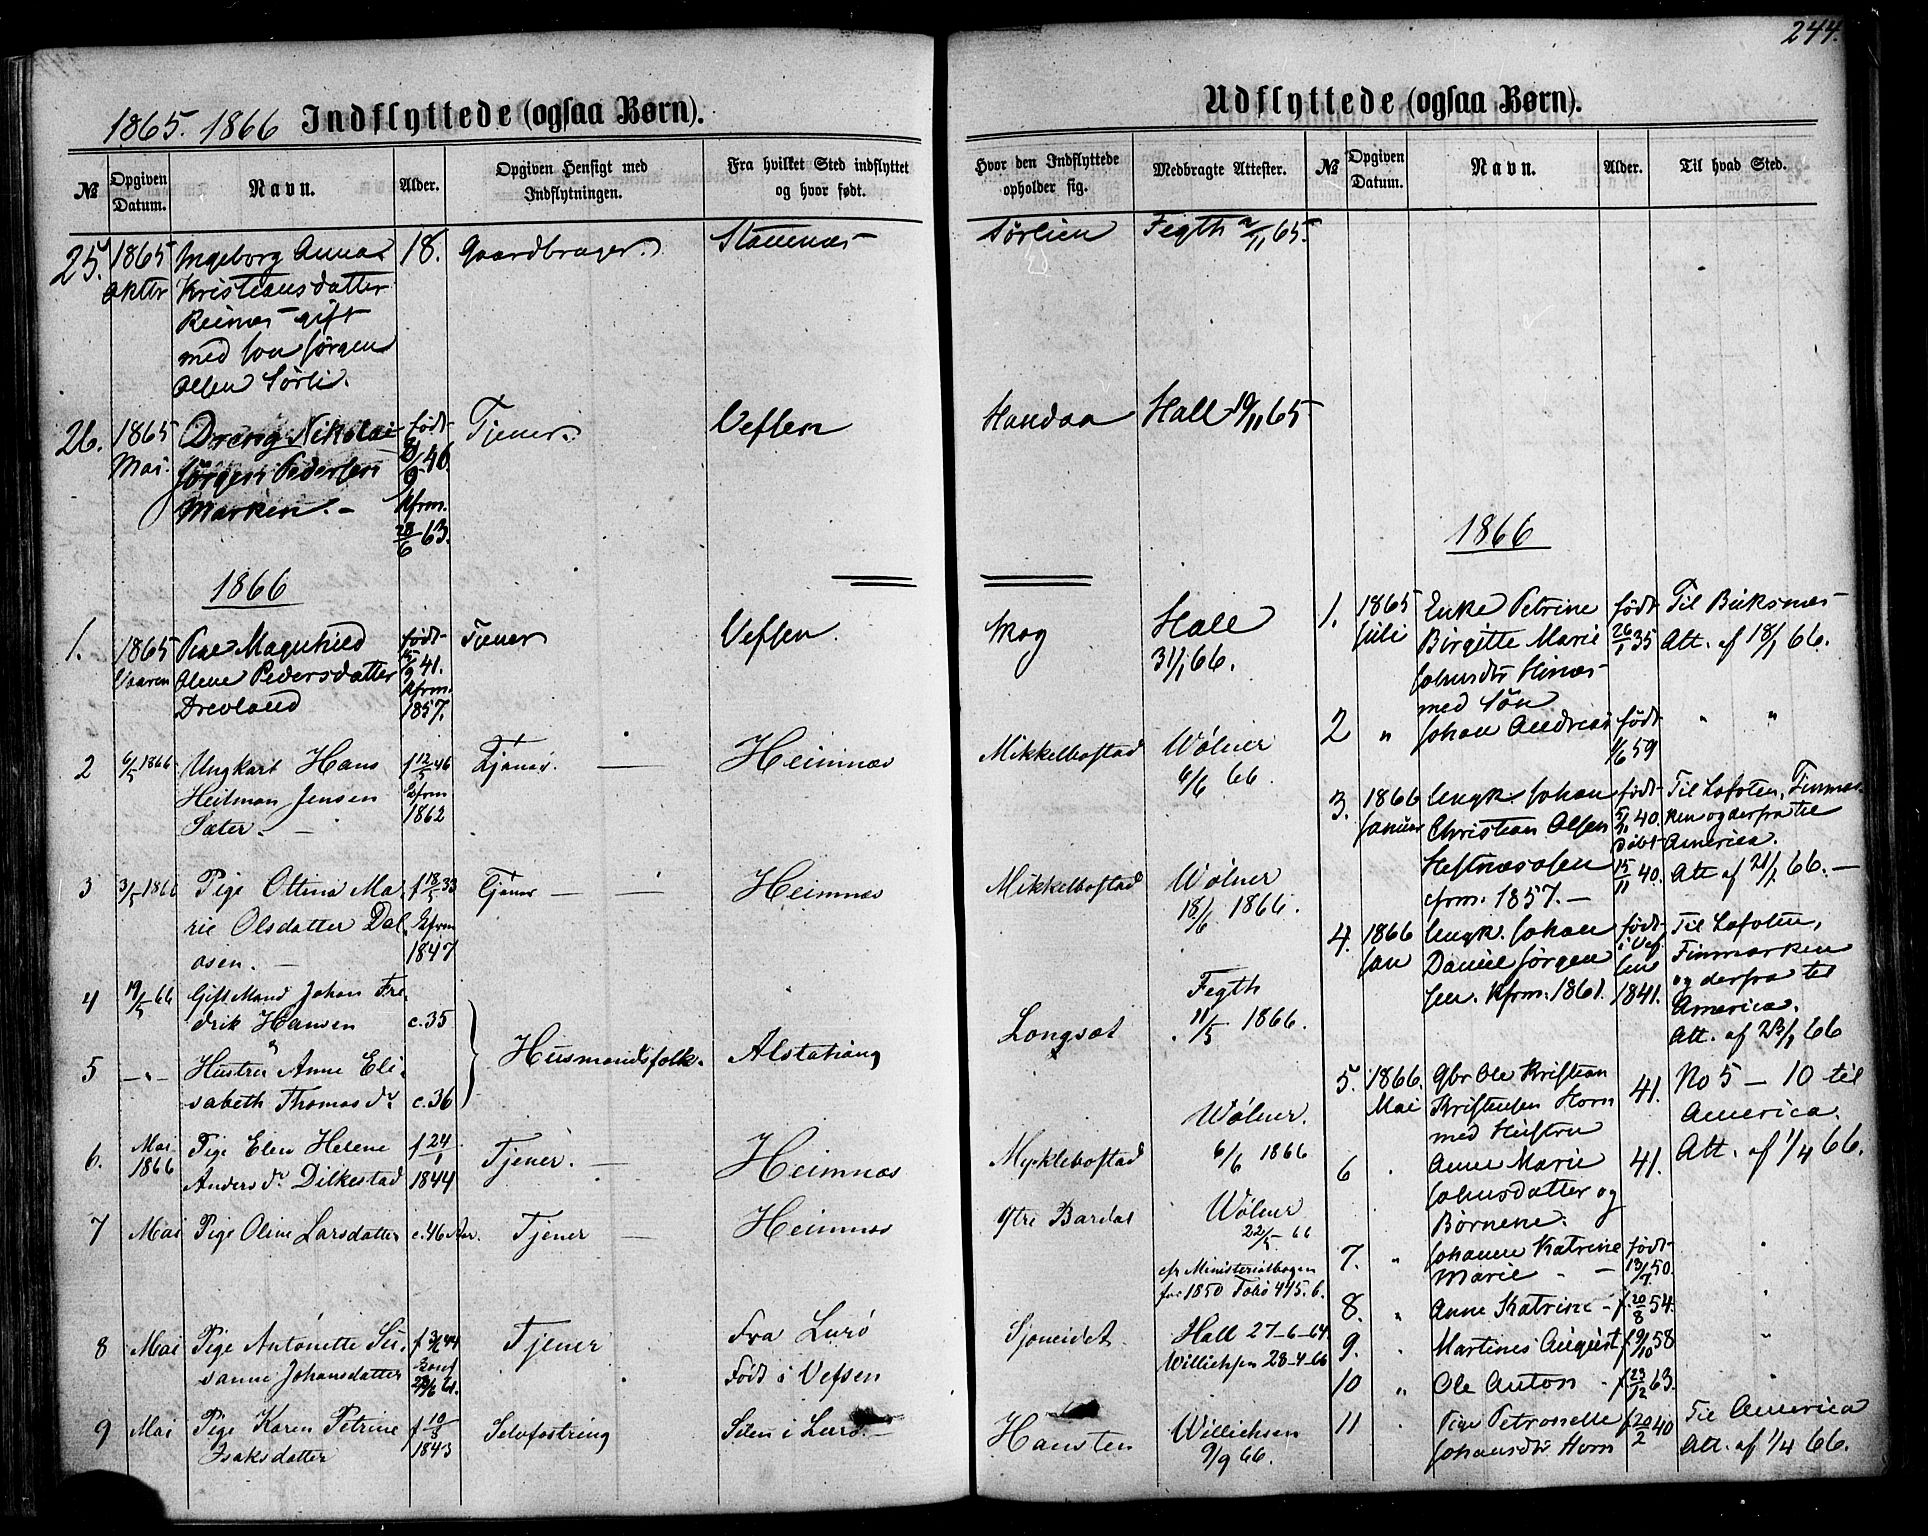 244.
1865. 1866 Indflyttede (ogsaa Børn).
№
Opgiven Datum.
Navn.
Alder.
Opgiven Hensigt med Indflytningen.
Fra hvilket Sted indflyttet og hvor født.
Hvor den Indflyttede opholder sig.
Medbragte Attester.
25. 1865 Ingeborg Anna 18. Gaardbruger. Stamnæs Sørlien Fegth 2/11 65.
Okter Kristiansdatter
Reinæs gift
med Jørgen
Olsen Sørli.
26. 1865 Dreng Nikolai født Tjener. Vefsen Handaa Hall 19/11 65
Mai. Jørgen Pedersen 46.
Marken. kfrm.
28/6 63.
1866
1. 1865 Pige Magnhild født Tjener Vefsen. Skog Hall
Vaaren Olene Pedersdatter 15/9 41. 31/1 66.
Drevland kfrm.
1857.
2 6/5 1866 Ungkarl Hans f 12/5 46 Tjener Heimnæs Mikkelbostad Wølner
Heilman Jensen kfrm 6/6 66.
Sæter. 1862
3 3/5 1866 Pige Ottine Ma- f 18/5 33 Tjener Heimnæs Mikkelbostad Wølner
rie Olsdatter Dal kfrm 18/6 1866.
osen. 1847
4 19/5 66 Gift Mand Johan Fre- Fegth
drik Hansen c.35 Langsæt 11/5 1866.
&
5 -"- Hustru Anne Eli- Husmandsfolk. Alstahoug
sabeth Thomasdr c.36
6. Mai Pige Elen Helene f 24/1 Tjener. Heimnæs Myklebostad Wølner.
1866 Andersdr Dilkestad 1844 6/6 1866
7 Mai Pige Oline Larsdatter c.46 Aar. Tjener Heimnæs Ytre Bardal Wølner
22/5 66
cfr Ministerialbogen
for 1850 Folio 445. 6.
8 Mai Pige Antonette Su- Tjener Fra Lurø Sjoneidet Hall 27-6-64
sanne Johansdatter Konf Født i Vefsen Willichsen 28-4-66
9 Mai Pige Karen Petrine f 10/3 Selvfostring i Lurø Hansten Willichsen
Isaksdatter 1843 9/9 66.
Udflyttede (ogsaa Børn).
№
Opgiven Datum.
Navn.
Alder.
Til hvad Sted.
1866
1. 1865 Enke Petrine født Til Buksnæs
Juli Birgitte Marie 26/1 35 Att. af 18/1 66.
Johnsdtr Hinæs
med Søn
2 " Johan Andreas født " "
1/6 59
3. 1866 Ungk. Johan født Til Lofoten, Finmar-
Januar Christian Olsen 5/11 40. ken og derfra til
døbt America.
Heftnæsosen 15/11 40. Att af 21/1 66. —
cfrm. 1857. —
4. 1866 Ungk. Johan født Til Lofoten,
Jan Daniel Jørgen i Vef Finmarken
sen. kfrm. 1861. sen og derfra til
1841. America.
Att. af 23/1 66
5. 1866. Gbr Ole Kristian 41. No 5 — 10 til
Mai Kristensen Horn America.
med Hustru
6 " Anne Marie 41. Att. af 1/4 66.
Johnsdatter og
Børnene.
7. " Johanne Katrine født "
Marie 13/7 50.
8. " Anne Katrine f. 20/8 54. "
9. Martines August f 9/10 58 "
10 " Ole Anton f 23/12 63.
11 " Pige Petronelle f 20/2 40 Til America
Johansdtr Horn Att. af 1/4 66.